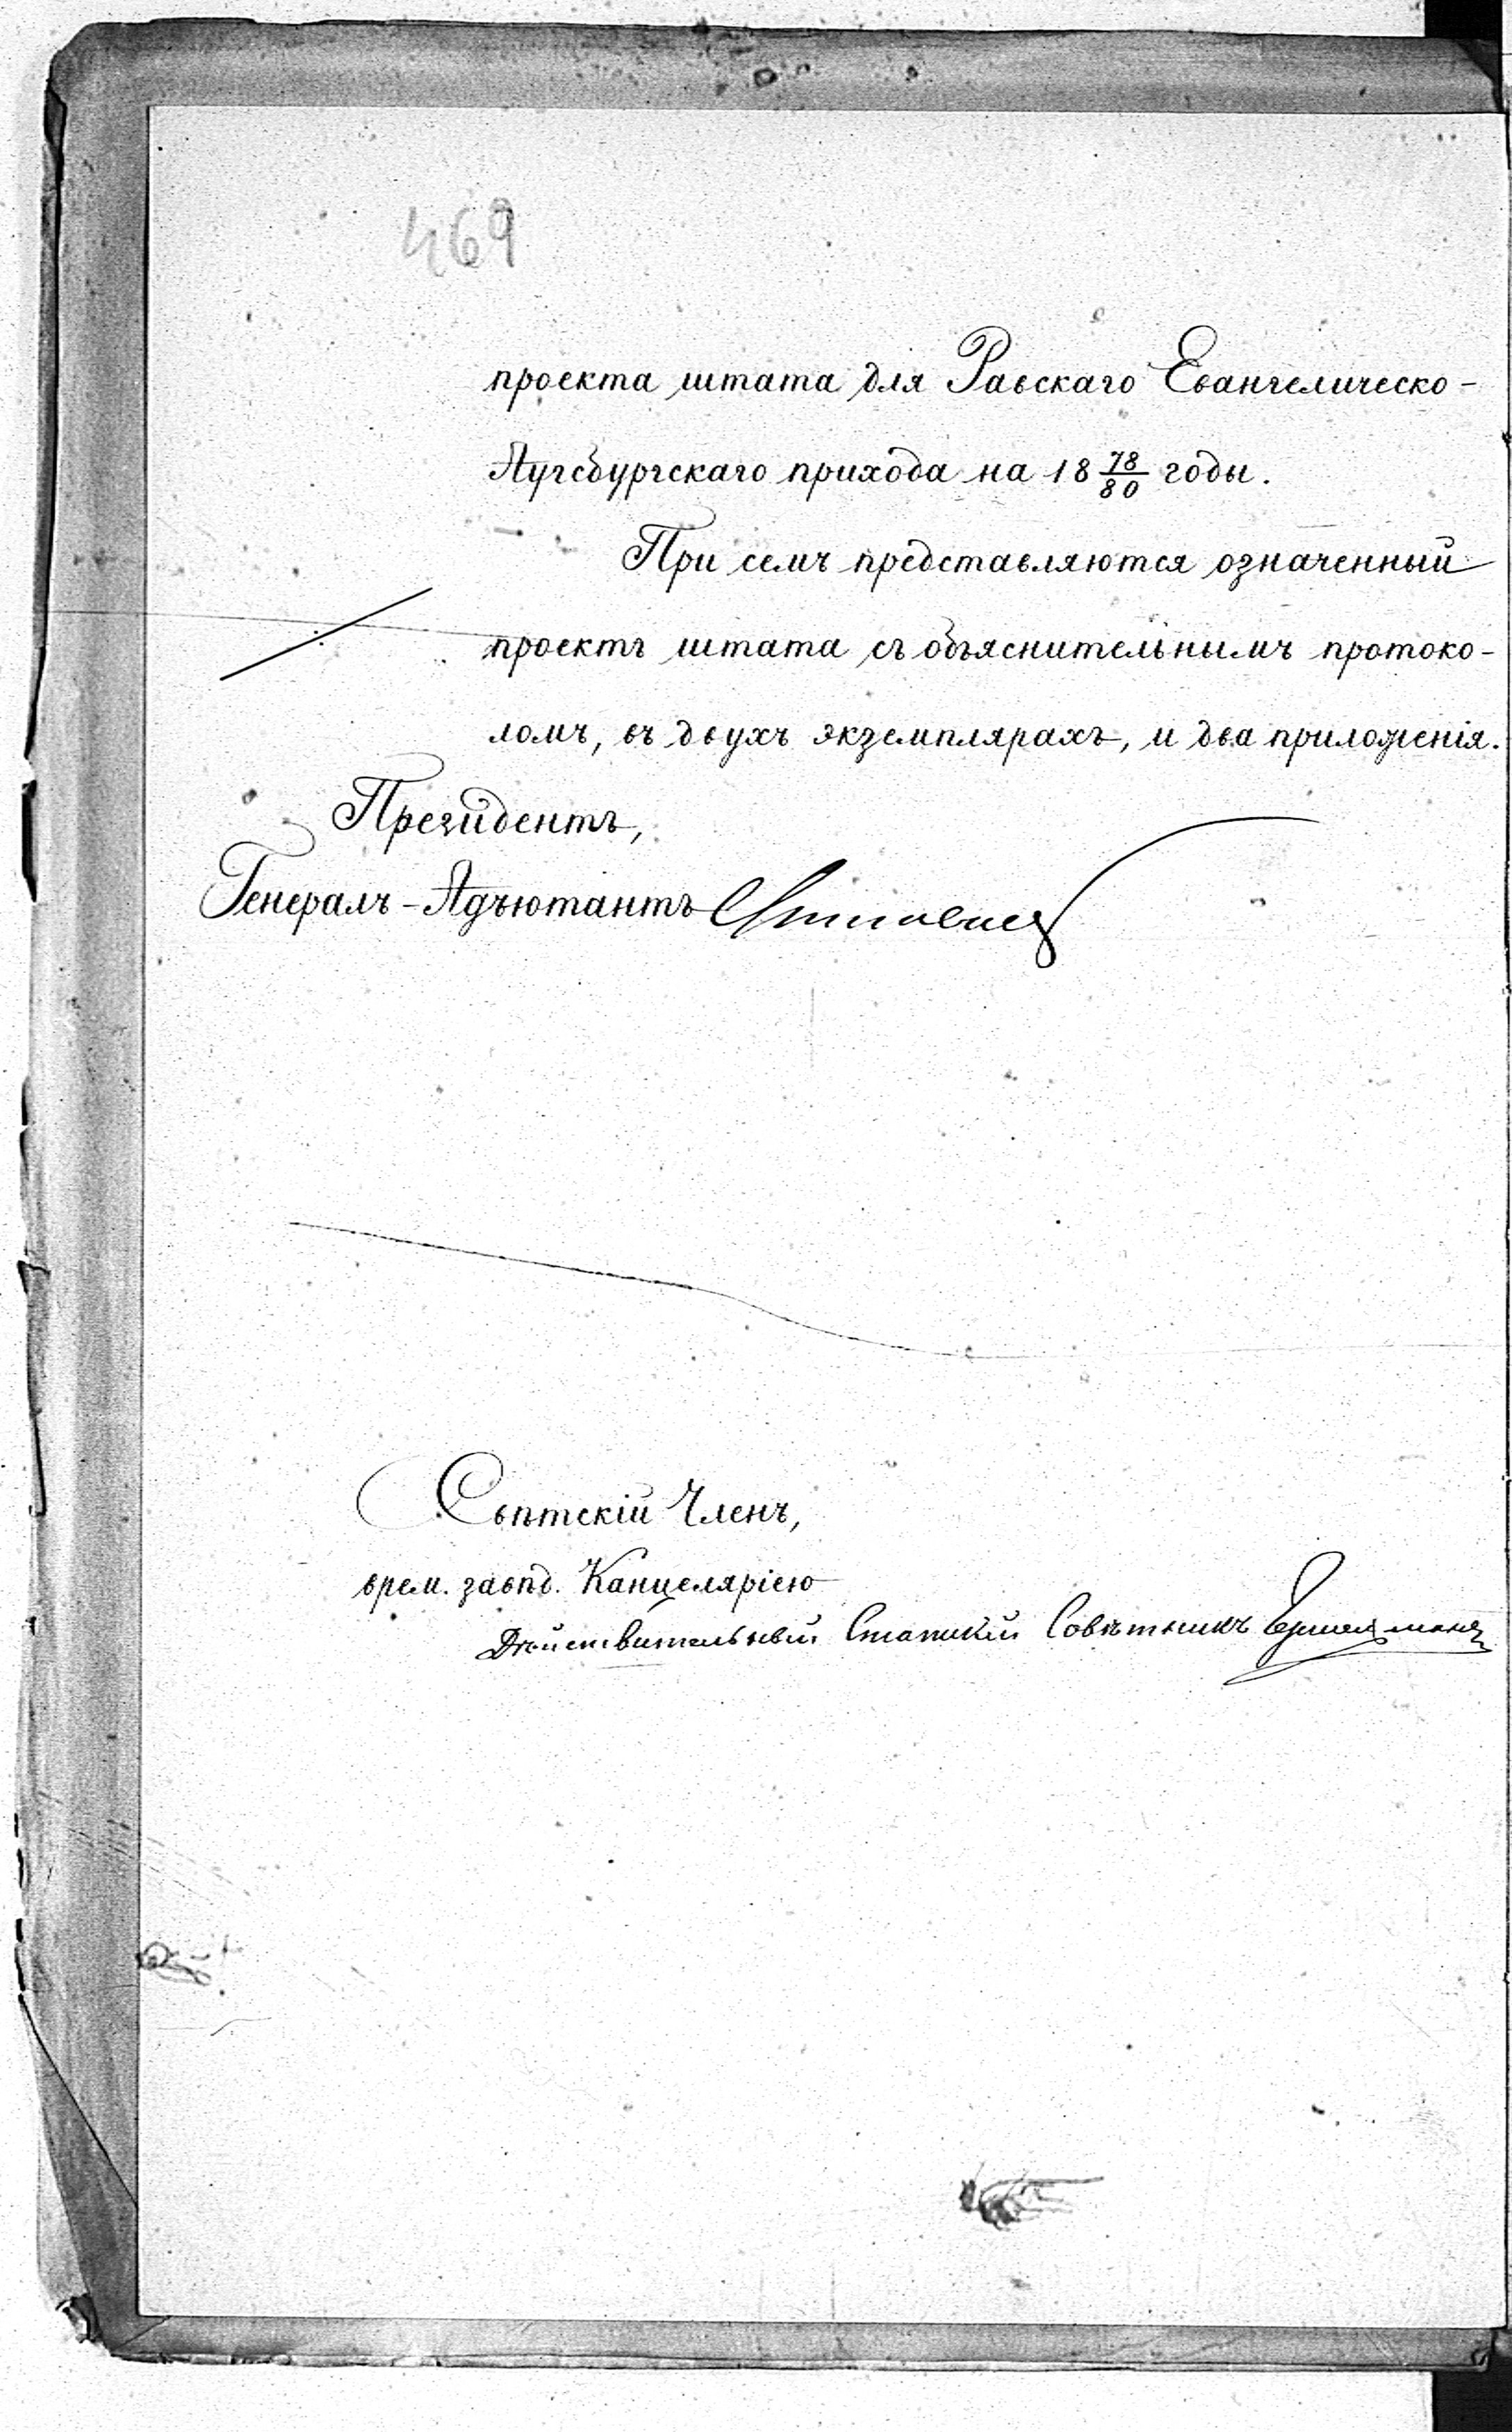 469
проекта штата для Равскаго Евангелическо-
Аугсбургскаго прихода на 18 78/80 годы.
При семъ представляются означенный
проектъ штата съ объяснительнымъ протоко-
ломъ, въ двухъ экземплярахъ, и два приложенія.
Президентъ,
Генералъ-Адъютантъ
Свѣтскій Членъ,
врем. завѣд. Канцеляріею
Дѣйствительный Статскій Совѣтникъ